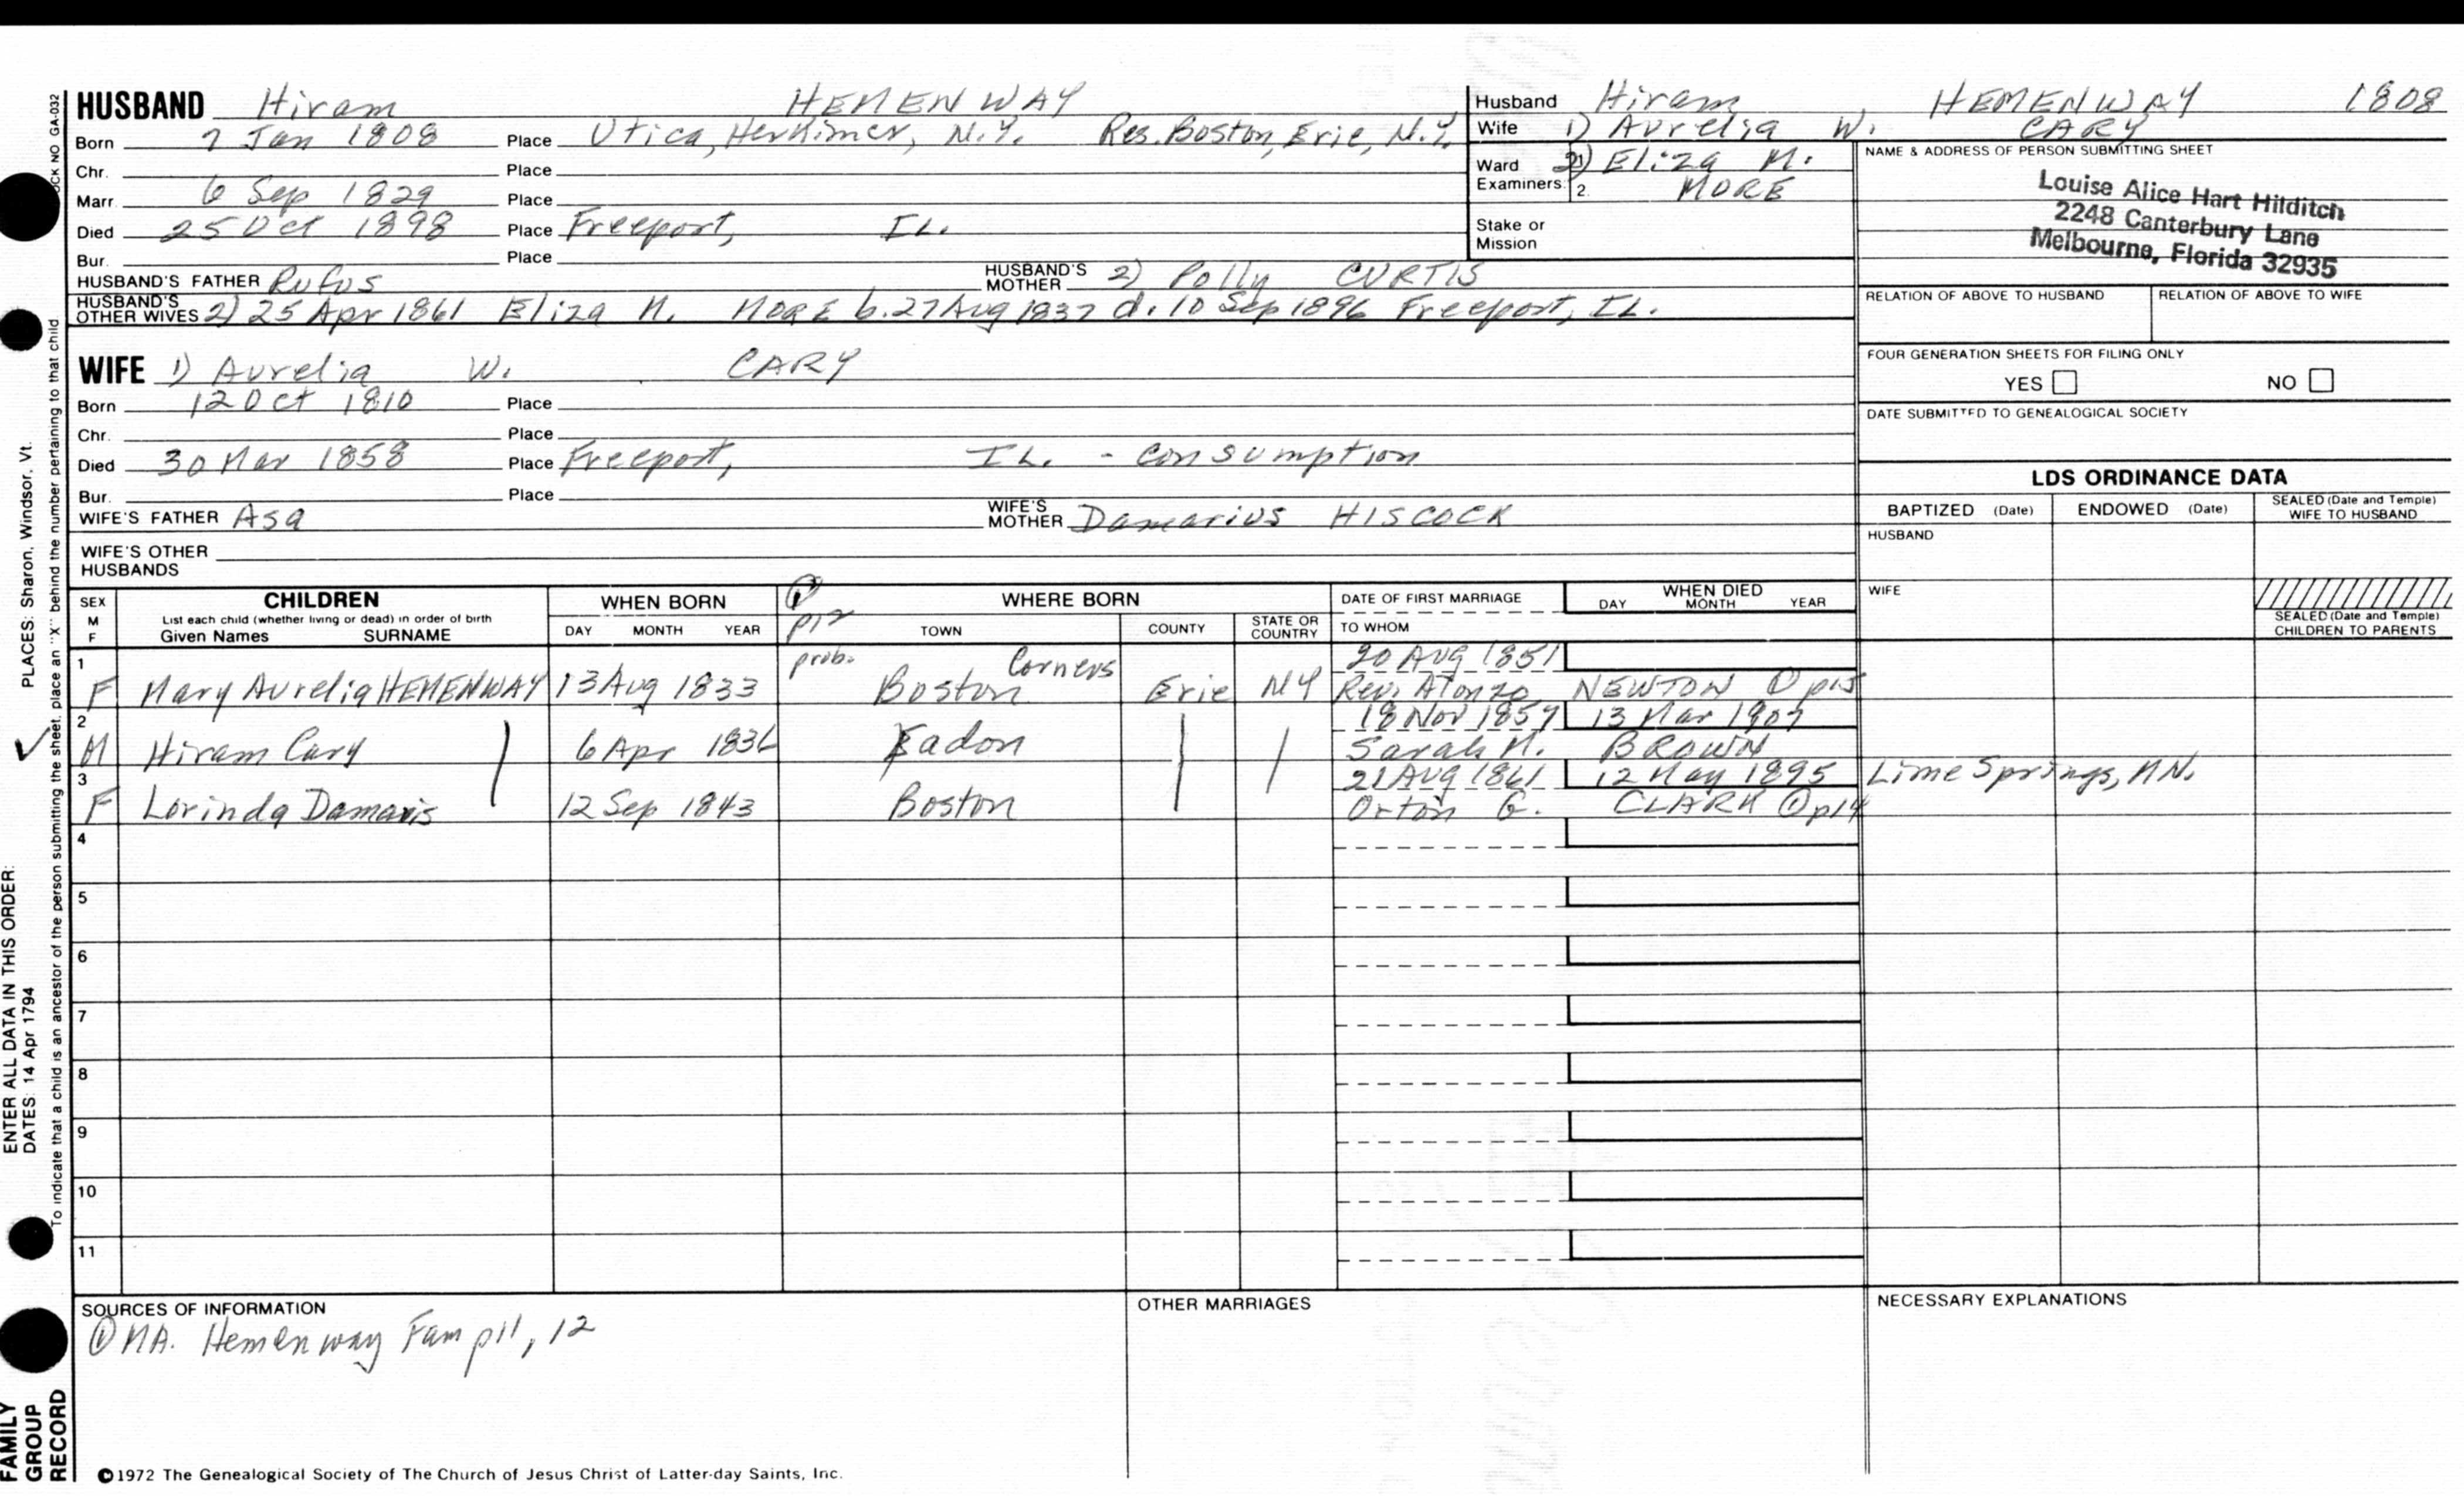 HUSBAND Hiram HEMENWAY
Born 7 Jan 1808 Place Utica, Herkimer, N.Y. Res. Boston, Erie, N.Y.
Chr. Place
Marr. 6 Sep 1829 Place
Died 25 Oct 1898 Place Freeport, IL.
Bur. Place
HUSBAND'S FATHER Rufus HUSBAND'S MOTHER 2) Polly CURTIS
HUSBAND'S OTHER WIVES 2) 25 Apr 1861 Eliza M. MORE b. 27 Aug 1837 d. 10 Sep 1896 Freeport, IL.
WIFE 1) Aurelia W. CARY
Born 12 Oct 1810 Place
Chr. Place
Died 30 Mar 1858 Place Freeport, IL. - Consumption
Bur. Place
WIFE'S FATHER Asa WIFE'S MOTHER Damarius HISCOCK
WIFE'S OTHER HUSBANDS
Husband Hiram HEMENWAY 1808
Wife 1) Aurelia W. CARY
Ward 2) Eliza M.
Examiners: 2. MORE
Stake or Mission
NAME & ADDRESS OF PERSON SUBMITTING SHEET
Louise Alice Hart Hilditch
2248 Canterbury Lane
Melbourne, Florida 32935
RELATION OF ABOVE TO HUSBAND RELATION OF ABOVE TO WIFE
FOUR GENERATION SHEETS FOR FILING ONLY
YES NO
DATE SUBMITTED TO GENEALOGICAL SOCIETY
LDS ORDINANCE DATA
BAPTIZED (Date) ENDOWED (Date) SEALED (Date and Temple) WIFE TO HUSBAND
HUSBAND
WIFE
SEALED (Date and Temple) CHILDREN TO PARENTS
SEX M F CHILDREN WHEN BORN ① p12 WHERE BORN DATE OF FIRST MARRIAGE WHEN DIED
List each child (whether living or dead) in order of birth
Given Names SURNAME DAY MONTH YEAR TOWN COUNTY STATE OR COUNTRY TO WHOM DAY MONTH YEAR
1 prob. Corners 20 AUG 1851
F Mary Aurelia HEMENWAY 13 Aug 1833 Boston Erie NY Rev. Alonzo NEWTON ① p15
2 18 Nov 1857 13 Mar 1907
M Hiram Cary 6 Apr 1836 Eadon Sarah M. BROWN
3 21 AUG 1861 12 May 1895 Lime Springs, MN.
F Lorinda Damaris 12 Sep 1843 Boston Orton G. CLARK ① p14
4
5
6
7
8
9
10
11
SOURCES OF INFORMATION OTHER MARRIAGES NECESSARY EXPLANATIONS
① MA. Hemenway Fam p11, 12
©1972 The Genealogical Society of The Church of Jesus Christ of Latter-day Saints, Inc.
FAMILY GROUP RECORD
ENTER ALL DATA IN THIS ORDER:
DATES: 14 Apr 1794 PLACES: Sharon, Windsor, Vt.
To indicate that a child is an ancestor of the person submitting the sheet, place an "X" behind the number pertaining to that child
CK NO GA-032